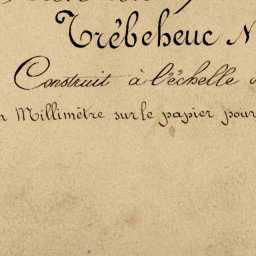 Trébeheuc N
Construit à l'échelle
Millimètre sur le papier pour